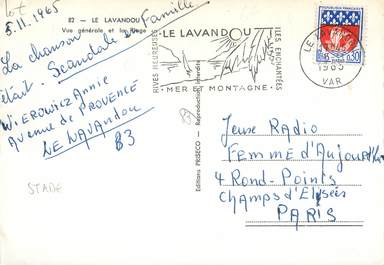 Lot
5.11.1965
82 - LE LAVANDOU
Vue générale et la Plage
La chanson
était. Scandale Famille
Wierowicz Annie
Avenue de Provence
Le Lavandou
83
STADE
RIVES HEUREUSES
LE LAVANDOU
ILES ENCHANTÉES
MER ET MONTAGNE
VAR
1965
RÉPUBLIQUE FRANÇAISE
0,30
Editions PRISECO - Reproduction Interdite
83
Jeuse Radio
Femme d'Aujourd'hui
4 Rond-Points
Champs d'Elysées
PARIS